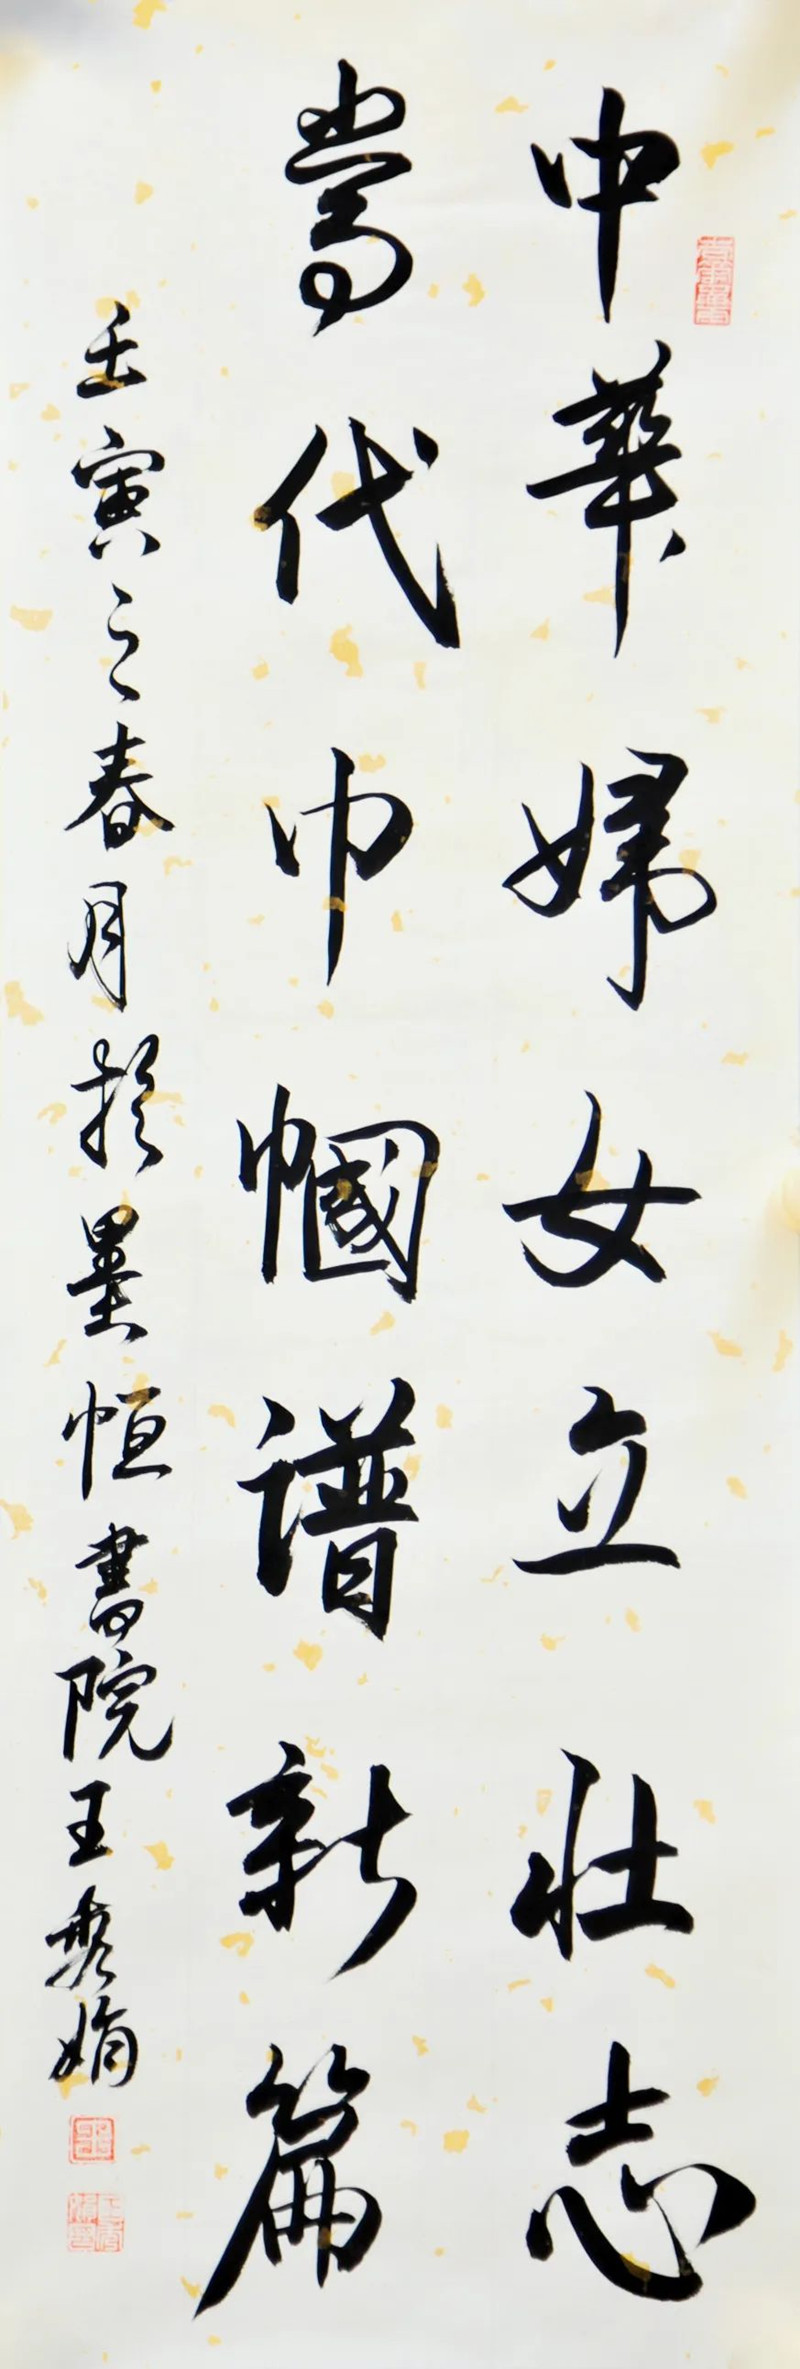 中華婦女立壯志
當代巾幗譜新篇
壬寅之春月於墨恒書院王秀娟